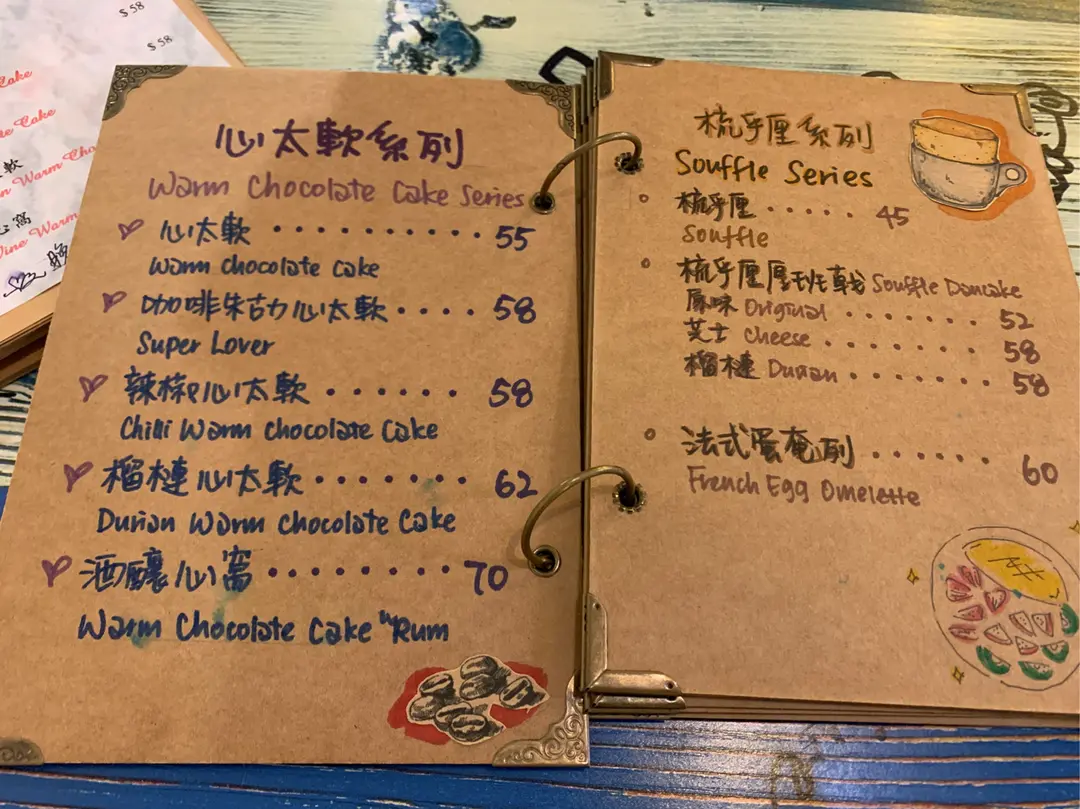 $58
$58
Cake
te Cake
軟
n Warm Cho
心窩
Wine Warm
心太軟系列
Warm Chocolate Cake Series
心太軟 . . . . . . . . . . 55
Warm chocolate cake
咖啡朱古力心太軟 . . . . 58
Super Lover
辣椒心太軟 . . . . . . . 58
Chilli Warm chocolate Cake
榴槤心太軟 . . . . . . . . 62
Durian Warm Chocolate Cake
酒釀心窩 . . . . . . . . . 70
Warm Chocolate Cake "Rum
梳乎厘系列
Souffle Series
梳乎厘 . . . . . . 45
Souffle
梳乎厘厚班戟 Souffle Pancake
原味 Original . . . . . . . 52
芝士 Cheese . . . . . . . . 58
榴槤 Durian . . . . . . . . 58
法式蛋奄列 . . . . . . 60
French Egg Omelette